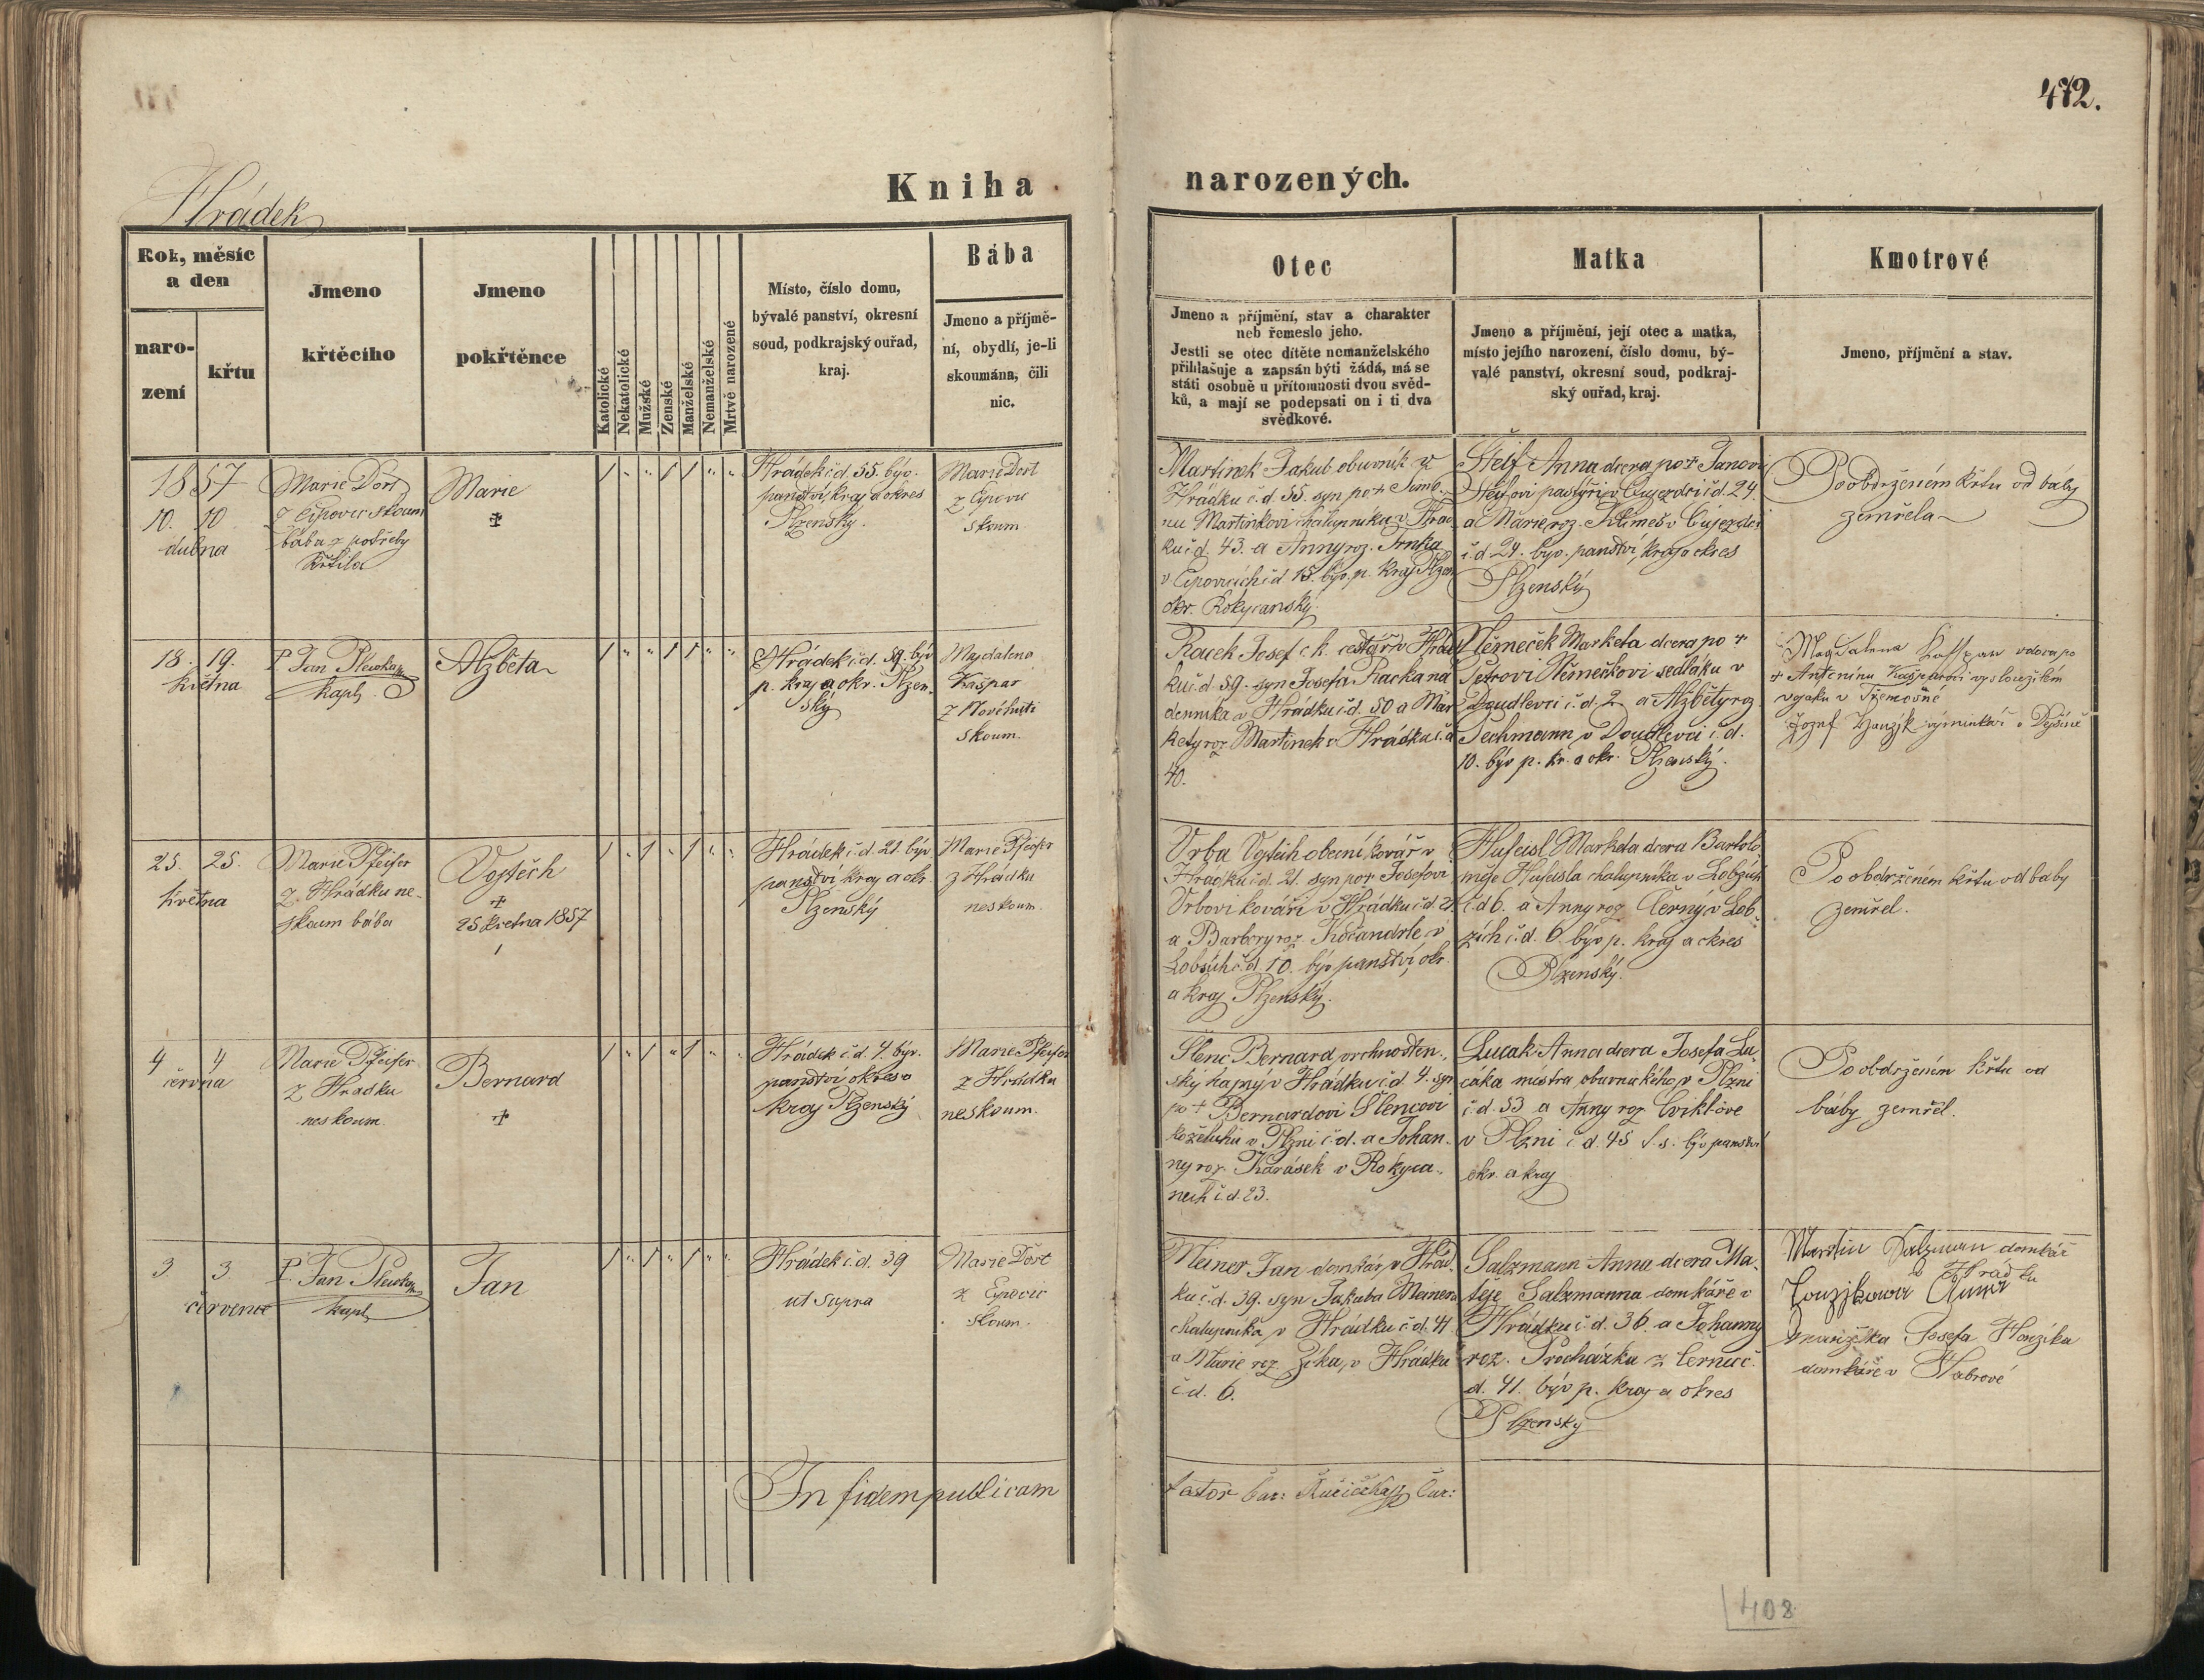 472.
Hrádek
Kniha narozených.
Rok, měsíc a den
narození
křtu
Jmeno křtěcího
Jmeno pokřtěnce
Katolické
Nekatolické
Mužské
Zenské
Manželské
Nemanželské
Mrtvě narozené
Místo, číslo domu,
bývalé panství, okresní
soud, podkrajský ouřad,
kraj.
Bába
Jmeno a příjmě-
ní, obydlí, je-li
skoumána, čili
nic.
Otec
Jmeno a příjmění, stav a charakter
neb řemeslo jeho.
Jestli se otec dítěte nemanželského
přihlašuje a zapsán býti žádá, má se
státi osobně u přítomnosti dvou svěd-
ků, a mají se podepsati on i ti dva
svědkové.
Matka
Jmeno a příjmění, její otec a matka,
místo jejího narození, číslo domu, bý-
valé panství, okresní soud, podkraj-
ský ouřad, kraj.
Kmotrové
Jmeno, příjmění a stav.
1857
10. 10
dubna
Marie Dört
z Ejpovic skoum
bába z potřeby
křtila
Marie
Hrádek č.d. 55. býv.
panství, kraj a okres
Plzenský.
Marie Dört
z Ejpovic
skoum.
Martinek Jakub obuvník v
Hrádku č.d. 55. syn po +
nu Martinkovi chalupníku v Hrád
ku č.d. 43. a Anny roz. Trnka
v Ejpovicích č.d 15. býv. p. kraj Plzen
okr. Rokycanský.
Štelf Anna dcera po + Janovi
Štelfovi pastýři v Oujezdci č.d 24.
a Marie roz. Klimeš v Oujezdci
č.d 24. býv. panství, kraj a okres
Plzenský
Po obdrženém křtu od báby
zemřela
18. 19.
května
P. Jan Plewka
kapl.
Alžběta
Hrádek č.d. 59. býv
p. kraj a okr. Plzen.
ský
Magdalena
Kašpar
z Nové huti
skoum.
Racek Josef c. k. cestář v Hrád
ku č.d 59. syn Josefa Racka ná
denníka v Hrádku č.d. 50 a Mar
kety roz. Martinek v Hrádku č.d
40.
Němeček Marketa dcera po +
Petrovi Němečkovi sedláku v
Doudlevci č.d. 2 a Alžběty roz
Pechmann v Doudlevci č.d.
10. býv p. kr. a okr. Plzenský.
Magdalena Kašpar vdova po
+ Antonínu Kašparovi vysloužilém
vojáku v Třemošné
Jozef Hanzjk výminkář v Dejšině
25. 25.
května
Marie Pfeifer
z Hrádku ne-
skoum bába
Vojtěch
25 května 1857
Hrádek č.d. 21. býv
panství kraj a okr
Plzenský
Marie Pfeifer
z Hrádku
neskoum.
Vrba Vojtěch obecní kovář v
Hrádku č.d. 21. syn po + Josefovi
Vrbovi kováři v Hrádku č.d 21.
a Barbory roz. Kočandrle v
Lobzích č.d 10. býv panství, okr.
a kraj Plzenský.
Hufeisl Marketa dcera Bartolo
měje Hufeisla chalupníka v Lobzích
č.d 6. a Anny roz. Černý v Lob.
zích č.d. 6. býv p. kraj a okres
Plzenský.
Po obdrženém křtu od báby
zemřel.
4 4
června
Marie Pfeifer
z Hrádku
neskoum.
Bernard
Hrádek č.d. 4. býv.
panství okres a
kraj Plzenský
Marie Pfeifer
z Hrádku
neskoum.
Šlenc Bernard vrchnosten.
ský hajný v Hrádku č.d 4. syn
po + Bernardovi Šlencovi
koželuhu v Plzni č.d. a Johan.
ny roz. Karásek v Rokyca.
nech č.d. 23.
Lucák Anna dcera Josefa Lu.
cáka mistra obuvnického v Plzni
č.d. 53 a Anny roz Cviklove
v Plzni č.d. 45 býv panství
okr. a kraj
Po obdrženém křtu od
báby zemřel.
3 3
července
P. Jan Plewka
kapl.
Jan
Hrádek č.d. 39
ut supra
Marie Dört
z Ejpovic
skoum.
Meiner Jan domkář v Hrád.
ku č.d. 39. syn Jakuba Meinera
chalupníka v Hrádku č.d. 41
a Marie roz. Zíka, v Hrádku
č.d. 6.
Salzmann Anna dcera Ma.
těje Salzmanna domkáře v
Hrádku č.d. 36. a Johanny
roz. Procházka z Černic č.
d. 41. býv p. kraj a okres
Plzenský
Martin Salzman domkář
Hrádku
Honzjkowá Anna
manželka Josefa Honzíka
domkáře v Habrové
In fidem publicam
408